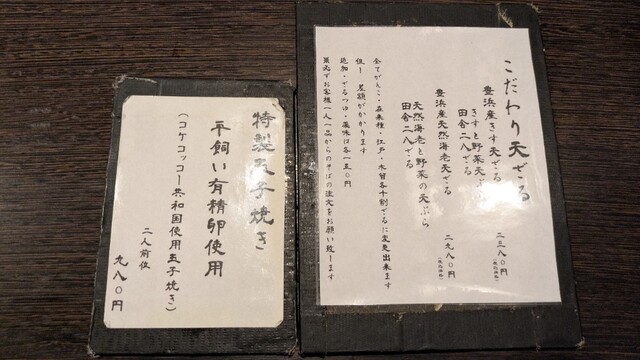 こだわり天ざる
豊浜産きす天ざる
きすと野菜天ぷら
田舎二八ざる
二二八〇円
(税込価格)
豊浜産天然海老天ざる
天然海老と野菜の天ぷら
田舎二八ざる
二九八〇円
(税込価格)
全てがえこ・在来種・江戸・水留各十割ざるに変更出来ます
但し差額がかかります
追加・ざるつゆ・薬味は各一五〇円
必ずお客様一人一品からのそばの注文をお願い致します
特製玉子焼き
平飼い有精卵使用
(コケコッコー共和国使用玉子焼き)
二人前位
九八〇円